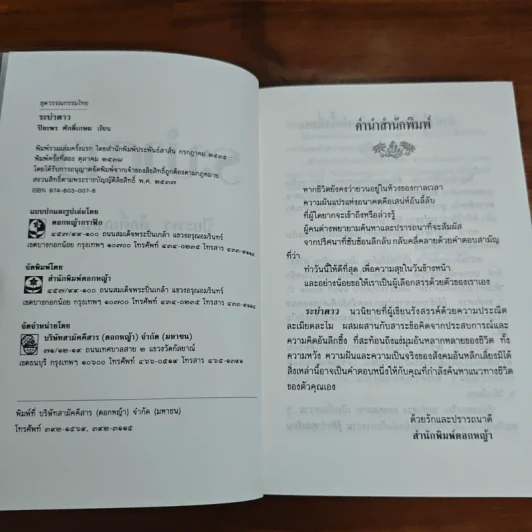 ชุดวรรณกรรมไทย
ระบำดาว
ปิยะพร ศักดิ์เกษม เขียน
พิมพ์รวมเล่มครั้งแรก โดยสำนักพิมพ์ประพันธ์สาส์น กรกฎาคม ๒๕๓๕
พิมพ์ครั้งที่สอง ตุลาคม ๒๕๓๘
โดยได้รับการอนุญาตจัดพิมพ์จากเจ้าของลิขสิทธิ์ถูกต้องตามกฎหมาย
สงวนลิขสิทธิ์ตามพระราชบัญญัติลิขสิทธิ์ พ.ศ. ๒๕๓๗
ISBN 974-603-007-8
แบบปกและรูปเล่มโดย
ดอกหญ้ากราฟิก
๔๕๗/๙๙-๑๐๐ ถนนสมเด็จพระปิ่นเกล้า แขวงอรุณอมรินทร์
เขตบางกอกน้อย กรุงเทพฯ ๑๐๗๐๐ โทรศัพท์ ๔๓๔-๐๒๓๕ โทรสาร
จัดพิมพ์โดย
สำนักพิมพ์ดอกหญ้า
๔๕๗/๙๙-๑๐๐ ถนนสมเด็จพระปิ่นเกล้า แขวงอรุณอมรินทร์
เขตบางกอกน้อย กรุงเทพฯ ๑๐๗๐๐ โทรศัพท์ ๔๓๔-๐๒๓๕ โทรสาร
จัดจำหน่ายโดย
บริษัทสามัคคีสาร (ดอกหญ้า) จำกัด (มหาชน)
๓๑/๑๒-๑๙ ถนนเทศบาลสาย ๒ แขวงวัดกัลยาณ์
เขตธนบุรี กรุงเทพฯ ๑๐๖๐๐ โทรศัพท์ ๔๖๖-๐๕๑๙ โทรสาร
พิมพ์ที่ บริษัทสามัคคีสาร (ดอกหญ้า) จำกัด (มหาชน)
โทรศัพท์ ๓๙๒-๑๕๖๙, ๓๙๒-๓๑๑๕
คำนำสำนักพิมพ์
หากชีวิตยังคงว่ายวนอยู่ในห้วงของกาลเวลา
ความผันแปรแห่งอนาคตคือเสน่ห์อันลี้ลับ
ที่ผู้ใดยากจะเข้าถึงหรือล่วงรู้
ผู้คนต่างพยายามค้นหาและปรารถนาที่จะสัมผัส
จากปริศนาที่ซับซ้อนลึกลับ กลับคลี่คลายด้วยคำตอบสามัญ
ที่ว่า
ทำวันนี้ให้ดีที่สุด เพื่อความสุขในวันข้างหน้า
และอย่างน้อยขอให้เราเป็นผู้เลือกสรรด้วยตัวของเราเอง
ระบำดาว นวนิยายที่ผู้เขียนรังสรรค์ด้วยความประณีต
ละเมียดละไม ผสมผสานกับสาระข้อคิดจากประสบการณ์และ
ความคิดอันลึกซึ้ง ที่สะท้อนถึงแง่มุมอันหลากหลายของชีวิต ทั้ง
ความหวัง ความฝันและความเป็นจริงของสังคมอันหลีกเลี่ยงมิได้
สิ่งเหล่านี้อาจเป็นคำตอบหนึ่งให้กับคุณที่กำลังค้นหาแนวทางชีวิต
ของตัวคุณเอง
ด้วยรักและปรารถนาดี
สำนักพิมพ์ดอกหญ้า